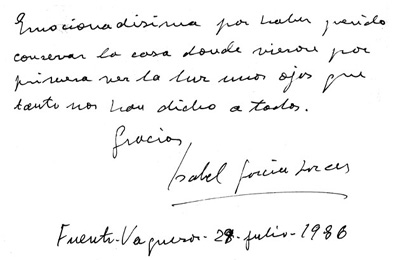 Emocionadisima por haber querido
conservar la casa donde vieron por
primera vez la luz unos ojos que
tanto nos han dicho a todos.
Gracias
Isabel García Lorca
Fuente-Vaqueros-28-julio-1986